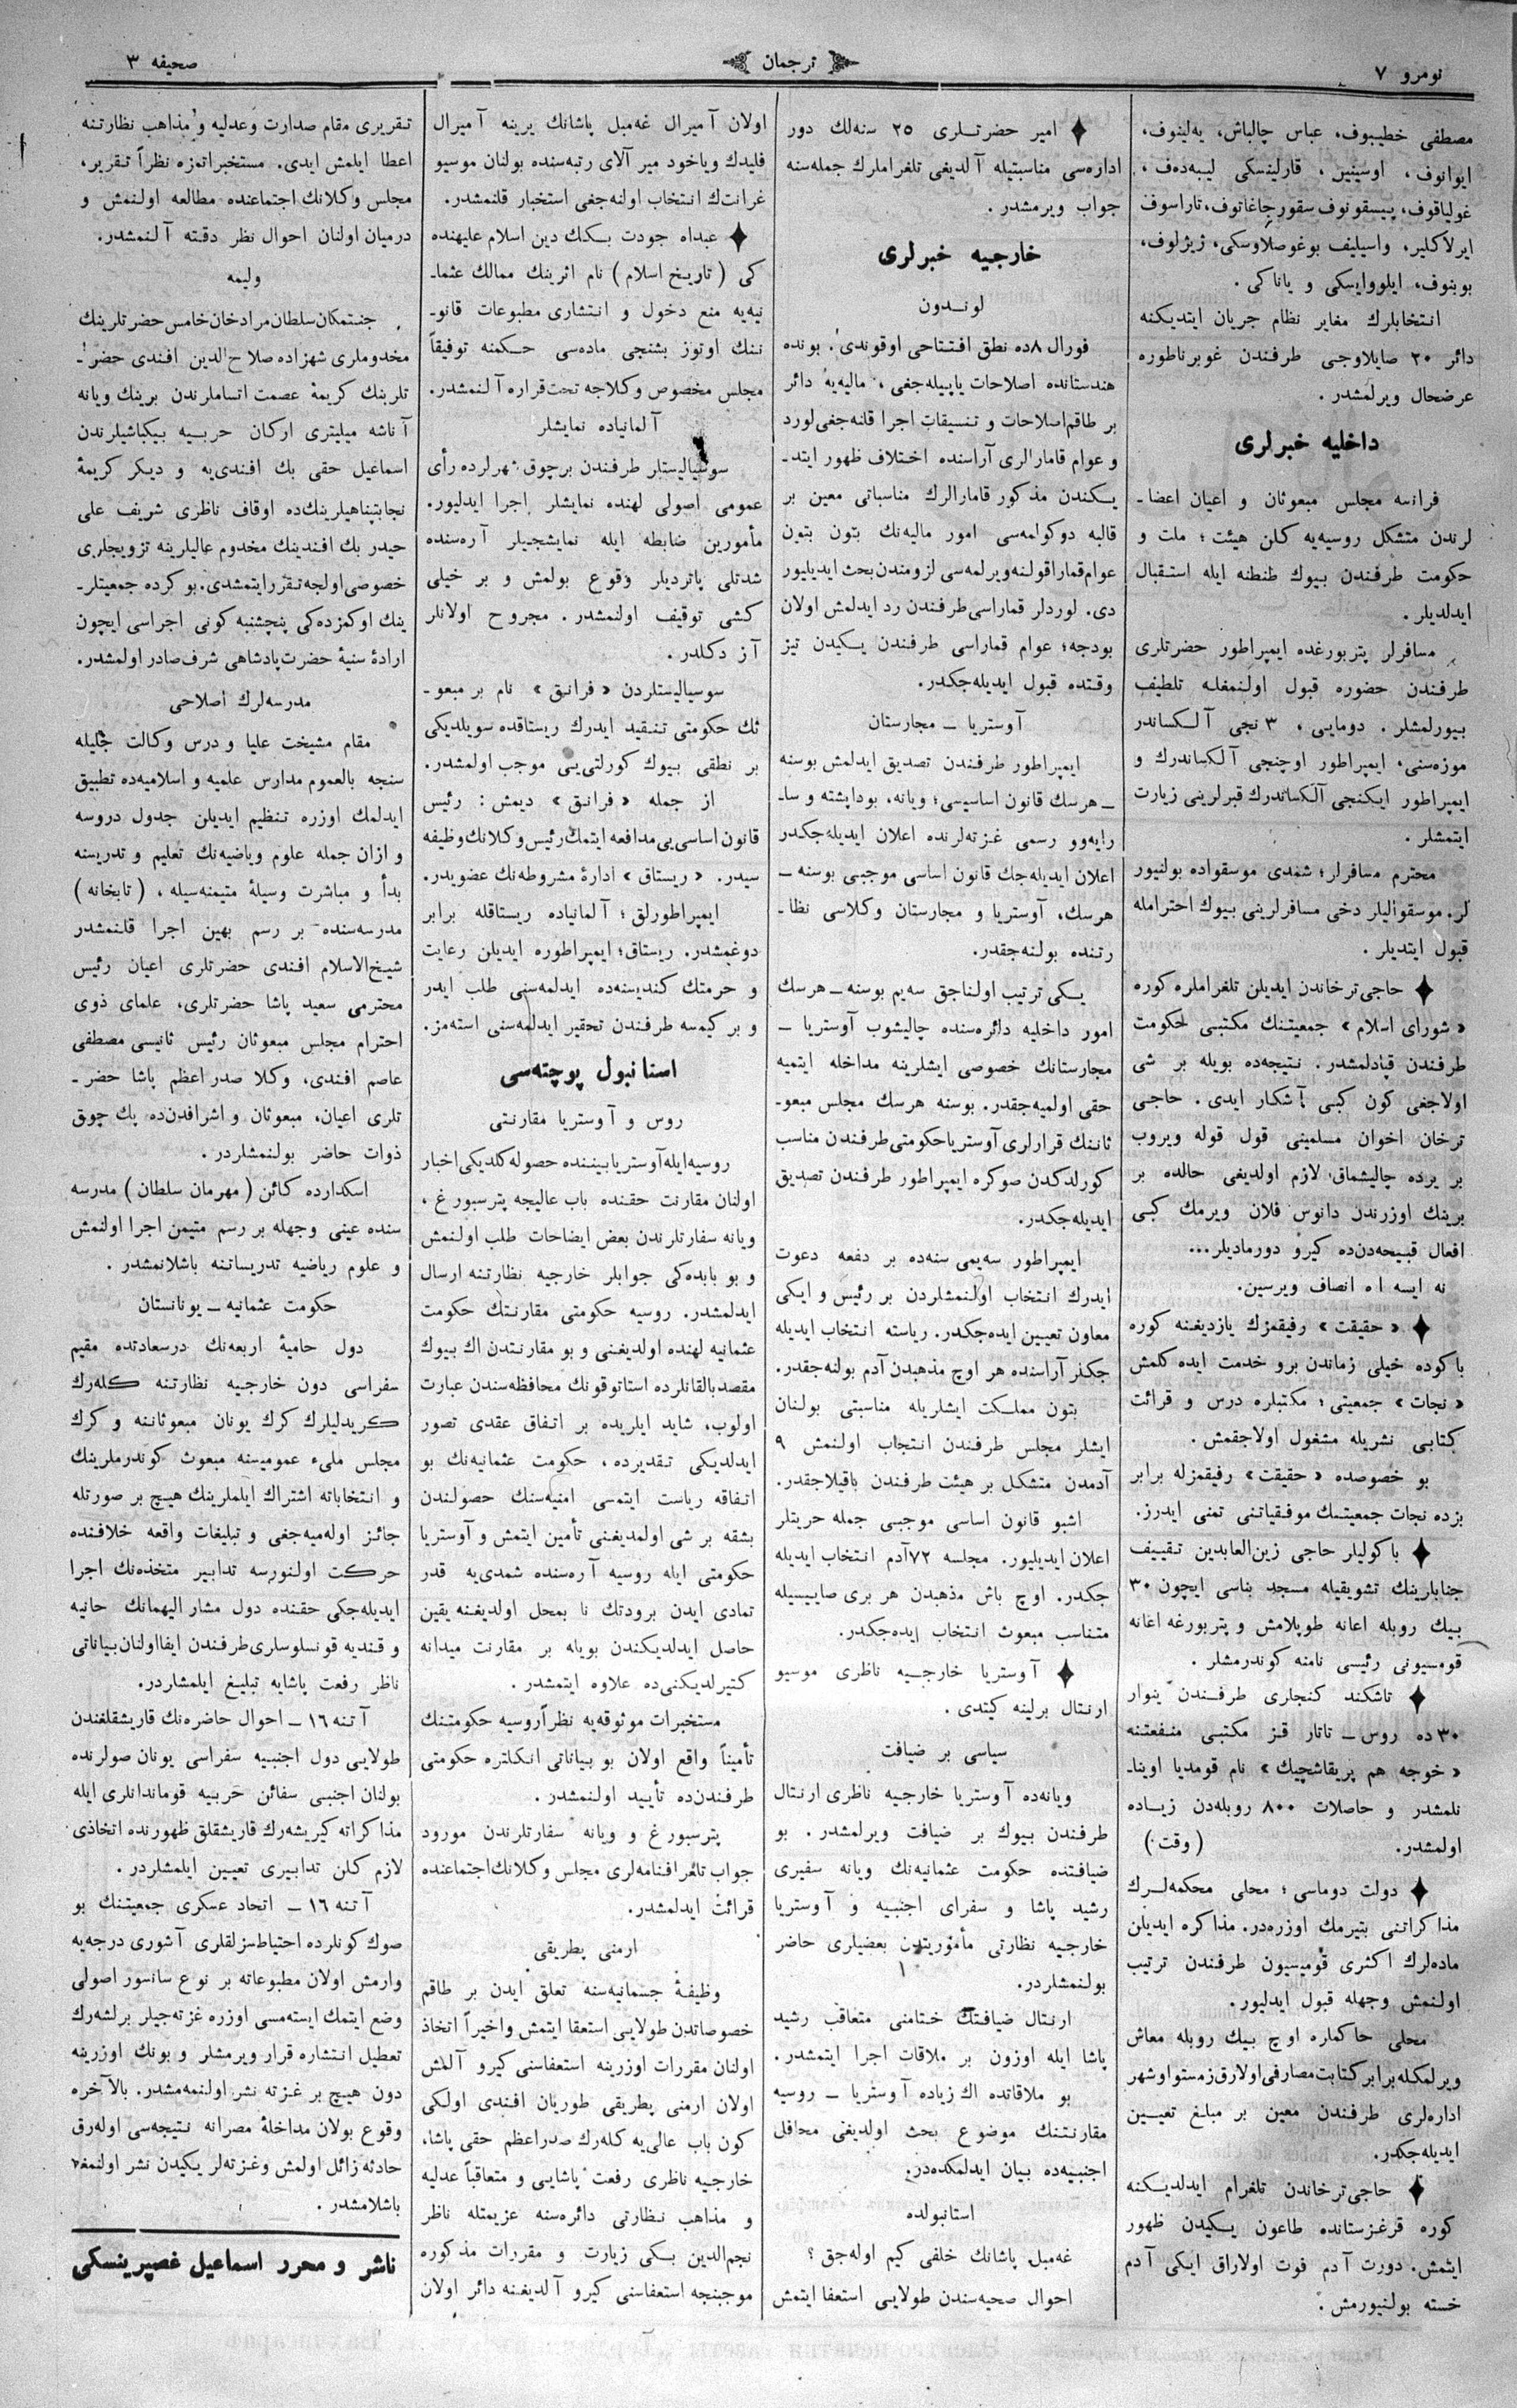 نومرو ۷
ترجمان
صحیفه ۳
مصطفی خطیبوف، عباس چالباش، یه‌لینوف،
ایوانوف، اوسینین، قارلینسکی لیبه‌ده‌ف،
غولیاقوف، پیسقونوف سقورجاغاتوف، تاراسوف
ایرلاکلیر، واسیلیف بوغوصلاوسکی، ژیژلوف،
بوبنوف، ایلووایسکی و یاناکی.
انتخابلرك مغایر نظام جریان ایتدیکنه
دائر ۲۰ صایلاوجی طرفندن غوبرناطوره
عرضحال ویرلمشدر.
داخلیه خبرلری
فرانسه مجلس مبعوثان و اعیان اعضا-
لرندن متشکل روسیه‌یه کلن هیئت؛ ملت و
حکومت طرفندن بیوك طنطنه ایله استقبال
ایدلدیلر.
مسافرلر پتربورغده ایمپراطور حضرتلری
طرفندن حضوره قبول اولنمغله تلطیف
بیورلمشلر. دومایی، ۳ نجی آلکساندر
موزه‌سنی، ایمپراطور اوچنجی آلکساندرك و
ایمپراطور ایکنجی آلکساندرك قبرلرینی زیارت
ایتمشلر.
محترم مسافرلر؛ شمدی موسقواده بولنیور
لر. موسقوالیلر دخی مسافرلرینی بیوك احترامله
قبول ایتدیلر.
حاجی‌ترخاندن ایدیلن تلغراملره کوره
«شورای اسلام» جمعیتنك مکتبی حکومت
طرفندن قپادلمشدر. نتیجه‌ده بویله بر شی
اولاجغی کون کبی آشکار ایدی. حاجی
ترخان اخوان مسلمینی قول قوله ویروب
بر یرده چالیشماق لازم اولدیغی حالده بر
برینك اوزرندن دانوس فلان ویرمك کبی
افعال قبیحه‌دن‌ده کیرو دورمادیلر...
نه ایسه اﻩ انصاف ویرسین.
«حقیقت» رفیقمزك یازدیغنه کوره
باکوده خیلی زماندن برو خدمت ایده‌کلمش
«نجات» جمعیتی؛ مکتبلره درس و قرائت
کتابی نشریله مشغول اولاجقمش.
بو خصوصده «حقیقت» رفیقمزله برابر
بزده نجات جمعیتنك موفقیاتنی تمنی ایدرز.
باکولیلر حاجی زین‌العابدین تقییف
جنابلرینك تشویقیله مسجد بناسی ایچون ۳۰
بیك روبله اعانه طوپلامش و پتربورغه اعانه
قومسیونی رئیسی نامنه کوندرمشلر.
تاشکند کنجلری طرفندن ینوار
۳۰ ده روس ـ تاتار قز مکتبی منفعتنه
«خوجه هم پریقاشچیك» نام قومدیا اوینا-
نلمشدر و حاصلات ۸۰۰ روبله‌دن زیاده
اولمشدر. (وقت)
دولت دوماسی؛ محلی محکمه‌لرك
مذاکراتنی بتیرمك اوزره‌در. مذاکره ایدیلن
ماده‌لرك اکثری قومیسیون طرفندن ترتیب
اولنمش وجهله قبول ایدلیور.
محلی حاکملره اوچ بیك روبله معاش
ویرلمکله برابر کتابت مصارفی اولارق زمستوا و شهر
اداره‌لری طرفندن معین بر مبلغ تعیین
ایدیله‌جکدر.
حاجی‌ترخاندن تلغرام ایدلدیکنه
کوره قرغزستانده طاعون یکیدن ظهور
ایتمش. دورت آدم فوت اولاراق ایکی آدم
خسته بولنیورمش.
امیر حضرتلری ۲۵ سنه‌لك دور
اداره‌سی مناسبتیله آلدیغی تلغراملرك جمله‌سنه
جواب ویرمشدر.
خارجیه خبرلری
لوندون
فورال ۸ده نطق افتتاحی اوقوندی. بونده
هندستانده اصلاحات یاپیله‌جغی، مالیه‌یه دائر
بر طاقم اصلاحات و تنسیقات اجرا قلنه‌جغی لورد
و عوام قامارالری آراسنده اختلاف ظهور ایتد-
یکندن مذکور قامارالرك مناسباتی معین بر
قالبه دوکولمه‌سی امور مالیه‌نك بتون بتون
عوام قماراقولنه ویرلمه‌سی لزومندن بحث ایدیلیور
دی. لوردلر قماراسی طرفندن رد ایدلمش اولان
بودجه؛ عوام قماراسی طرفندن یکیدن تیز
وقتده قبول ایدیله‌جکدر.
آوستریا ـ مجارستان
ایمپراطور طرفندن تصدیق ایدلمش بوسنه
ـ هرسك قانون اساسیسی؛ ویانه، بوداپشته و سا-
رایه‌وو رسمی غزته‌لرنده اعلان ایدیله‌جکدر
اعلان ایدیله‌جك قانون اساسی موجبی بوسنه ـ
هرسك، آوستریا و مجارستان وکلاسی نظا-
رتنده بولنه‌جقدر.
یکی ترتیب اولناجق سه‌یم بوسنه ـ هرسك
امور داخلیه دائره‌سنده چالیشوب آوستریا ـ
مجارستانك خصوصی ایشلرینه مداخله ایتمیه
حقی اولمیه‌جقدر. بوسنه هرسك مجلس مبعو-
ثاننك قرارلری آوستریا حکومتی طرفندن مناسب
کورلدکدن صوکره ایمپراطور طرفندن تصدیق
ایدیله‌جکدر.
ایمپراطور سه‌یمی سنه‌ده بر دفعه دعوت
ایدرك انتخاب اولنمشلردن بر رئیس و ایکی
معاون تعیین ایده‌جکدر. ریاسته انتخاب ایدیله
جکلر آراسنده هر اوچ مذهبدن آدم بولنه‌جقدر.
بتون مملکت ایشلریله مناسبتی بولنان
ایشلر مجلس طرفندن انتخاب اولنمش ۹
آدمدن متشکل بر هیئت طرفندن باقیلاجقدر.
اشبو قانون اساسی موجبی جمله حریتلر
اعلان ایدیلیور. مجلسه ۷۲ آدم انتخاب ایدیله
جکدر. اوچ باش مذهبدن هر بری صاییسیله
متناسب مبعوث انتخاب ایده‌جکدر.
آوستریا خارجیه ناظری موسیو
ارنتال برلینه کیتدی.
سیاسی بر ضیافت
ویانه‌ده آوستریا خارجیه ناظری ارنتال
طرفندن بیوك بر ضیافت ویرلمشدر. بو
ضیافتده حکومت عثمانیه‌نك ویانه سفیری
رشید پاشا و سفرای اجنبیه و آوستریا
خارجیه نظارتی مأموریتدن بعضیلری حاضر
بولنمشلردر.
ارنتال ضیافتك ختامنی متعاقب رشید
پاشا ایله اوزون بر ملاقات اجرا ایتمشدر.
بو ملاقاتده اك زیاده آوستریا ـ روسیه
مقارنتنك موضوع بحث اولدیغی محافل
اجنبیه‌ده بیان ایدلمکده‌در.
استانبولده
غه‌مبل پاشانك خلفی کیم اوله‌جق؟
احوال صحیه‌سندن طولایی استعفا ایتمش
اولان آمیرال غه‌مبل پاشانك یرینه آمیرال
فلیدك ویاخود میر آلای رتبه‌سنده بولنان موسیو
غرانت‌ك انتخاب اولنه‌جغی استخبار قلنمشدر.
عبداﻩ جودت بكك دین اسلام علیهنده
کی (تاریخ اسلام) نام اثرینك ممالك عثما-
نیه‌یه منع دخول و انتشاری مطبوعات قانو-
ننك اوتوز بشنجی ماده‌سی حکمنه توفیقاً
مجلس مخصوص وکلاجه تحت قراره آلنمشدر.
آلمانیاده نمایشلر
سوسیالیستلر طرفندن برچوق شهرلرده رأی
عمومی اصولی لهنده نمایشلر اجرا ایدلیور.
مأمورین ضابطه ایله نمایشجیلر آره‌سنده
شدتلی پاتردیلر وقوع بولمش و بر خیلی
کشی توقیف اولنمشدر. مجروح اولانلر
آز دکلدر.
سوسیالیستلردن «فرانق» نام بر مبعو-
ثك حکومتی تنقید ایدرك ریستاقده سویلدیکی
بر نطقی بیوك کورلتی‌یی موجب اولمشدر.
از جمله «فرانق» دیمش: رئیس
قانون اساسی‌یی مدافعه ایتمك رئیس وکلانك وظیفه
سیدر. «ریستاق» ادارۀ مشروطه‌نك عضویدر.
ایمپراطورلق؛ آلمانیاده ریستاقله برابر
دوغمشدر. ریستاق؛ ایمپراطوره ایدیلن رعایت
و حرمتك کندیسنه‌ده ایدلمه‌سنی طلب ایدر
و بر کیمسه طرفندن تحقیر ایدلمه‌سنی استه‌مز.
استانبول پوچته‌سی
روس و آوستریا مقارنتی
روسیه ایله آوستریا بیننده حصوله کلدیکی اخبار
اولنان مقارنت حقنده باب عالیجه پترسبورغ،
ویانه سفارتلرندن بعض ایضاحات طلب اولنمش
و بو بابده‌کی جوابلر خارجیه نظارتنه ارسال
ایدلمشدر. روسیه حکومتی مقارنتك حکومت
عثمانیه لهنده اولدیغنی و بو مقارنتدن اك بیوك
مقصد بالقانلرده استاتوقونك محافظه‌سندن عبارت
اولوب، شاید ایلریده بر اتفاق عقدی تصور
ایدلدیکی تقدیرده، حکومت عثمانیه‌نك بو
اتفاقه ریاست ایتمسی امنیه‌سنك حصولندن
بشقه بر شی اولمدیغنی تأمین ایتمش و آوستریا
حکومتی ایله روسیه آره‌سنده شمدی‌یه قدر
تمادی ایدن برودتك نا بمحل اولدیغنه یقین
حاصل ایدلدیکندن بویله بر مقارنت میدانه
کتیرلدیکنی‌ده علاوه ایتمشدر.
مستخبرات موثوقه‌یه نظراً روسیه حکومتنك
تأمیناً واقع اولان بو بیاناتی انکلتره حکومتی
طرفندن‌ده تأیید اولنمشدر.
پترسبورغ و ویانه سفارتلرندن مورود
جواب تلغرافنامه‌لری مجلس وکلانك اجتماعنده
قرائت ایدلمشدر.
ارمنی پطریقی
وظیفۀ جسمانیه‌سنه تعلق ایدن بر طاقم
خصوصاتدن طولایی استعفا ایتمش واخیراً اتخاذ
اولنان مقررات اوزرینه استعفاسنی کیرو آلمش
اولان ارمنی پطریقی طوریان افندی اولکی
کون باب عالی‌یه کله‌رك صدراعظم حقی پاشا،
خارجیه ناظری رفعت پاشایی و متعاقباً عدلیه
و مذاهب نظارتی دائره‌سنه عزیمتله ناظر
نجم‌الدین بکی زیارت و مقررات مذکوره
موجبنجه استعفاسنی کیرو آلدیغنه دائر اولان
تقریری مقام صدارت وعدلیه و مذاهب نظارتنه
اعطا ایلمش ایدی. مستخبراتمزه نظراً تقریر،
مجلس وکلانك اجتماعنده مطالعه اولنمش و
درمیان اولنان احوال نظر دقته آلنمشدر.
ولیمه
جنتمکان سلطان مراد خان خامس حضرتلرینك
مخدوملری شهزاده صلاح‌الدین افندی حضرا-
تلرینك کریمۀ عصمت اتساملرندن برینك ویانه
آتاشه میلیتری ارکان حربیه بیکباشیلرندن
اسماعیل حقی بك افندی‌یه و دیکر کریمۀ
نجابتپناهیلرینك‌ده اوقاف ناظری شریف علی
حیدر بك افندینك مخدوم عالیلرینه تزویجلری
خصوصی اولجه تقرر ایتمشدی. بو کره جمعیتلر-
ینك اوکمزده‌کی پنچشنبه کونی اجراسی ایچون
ارادۀ سنیۀ حضرت پادشاهی شرف صادر اولمشدر.
مدرسه‌لرك اصلاحی
مقام مشیخت علیا و درس وکالت جلیله
سنجه بالعموم مدارس علمیه و اسلامیه‌ده تطبیق
ایدلمك اوزره تنظیم ایدیلن جدول دروسه
و ازان جمله علوم ریاضیه‌نك تعلیم و تدریسنه
بدأ و مباشرت وسیلۀ متیمنه‌سیله، (تابخانه)
مدرسه‌سنده بر رسم بهین اجرا قلنمشدر
شیخ‌الاسلام افندی حضرتلری اعیان رئیس
محترمی سعید پاشا حضرتلری، علمای ذوی
احترام مجلس مبعوثان رئیس ثانیسی مصطفی
عاصم افندی، وکلا صدر اعظم پاشا حضر-
تلری اعیان، مبعوثان و اشرافدن‌ده پك چوق
ذوات حاضر بولنمشلردر.
اسکدارده کائن (مهرمان سلطان) مدرسه
سنده عینی وجهله بر رسم متیمن اجرا اولنمش
و علوم ریاضیه تدریساتنه باشلانمشدر.
حکومت عثمانیه ـ یونانستان
دول حامیۀ اربعه‌نك درسعادتده مقیم
سفراسی دون خارجیه نظارتنه کله‌رك
کریدلیلرك کرك یونان مبعوثاننه و کرك
مجلس ملیء عمومیسنه مبعوث کوندرملرینك
و انتخاباته اشتراك ایلملرینك هیچ بر صورتله
جائز اوله‌میه‌جغی و تبلیغات واقعه خلافنده
حرکت اولنورسه تدابیر متخذه‌نك اجرا
ایدیله‌جکی حقنده دول مشار الیهمانك حانیه
و قندیه قونسلوسلری طرفندن ایفا اولنان بیاناتی
ناظر رفعت پاشایه تبلیغ ایلمشلردر.
آتنه ۱۶ ـ احوال حاضره‌نك قاریشقلغندن
طولایی دول اجنبیه سفراسی یونان صولرنده
بولنان اجنبی سفائن حربیه قوماندانلری ایله
مذاکراته کیریشه‌رك قاریشقلق ظهورنده اتخاذی
لازم کلن تدابیری تعیین ایلمشلردر.
آتنه ۱۶ ـ اتحاد عسکری جمعیتنك بو
صوك کونلرده احتیاطسزلقلری آشوری درجه‌یه
وارمش اولان مطبوعاته بر نوع سانسور اصولی
وضع ایتمك ایسته‌مسی اوزره غزته‌جیلر برلشه‌رك
تعطیل انتشاره قرار ویرمشلر و بونك اوزرینه
دون هیچ بر غزته نشر اولنمه‌مشدر. بالآخره
وقوع بولان مداخلۀ مصرانه نتیجه‌سی اوله‌رق
حادثه زائل اولمش وغزته‌لر یکیدن نشر اولنمغه
باشلامشدر.
ناشر و محرر اسماعیل غصپرینسکی